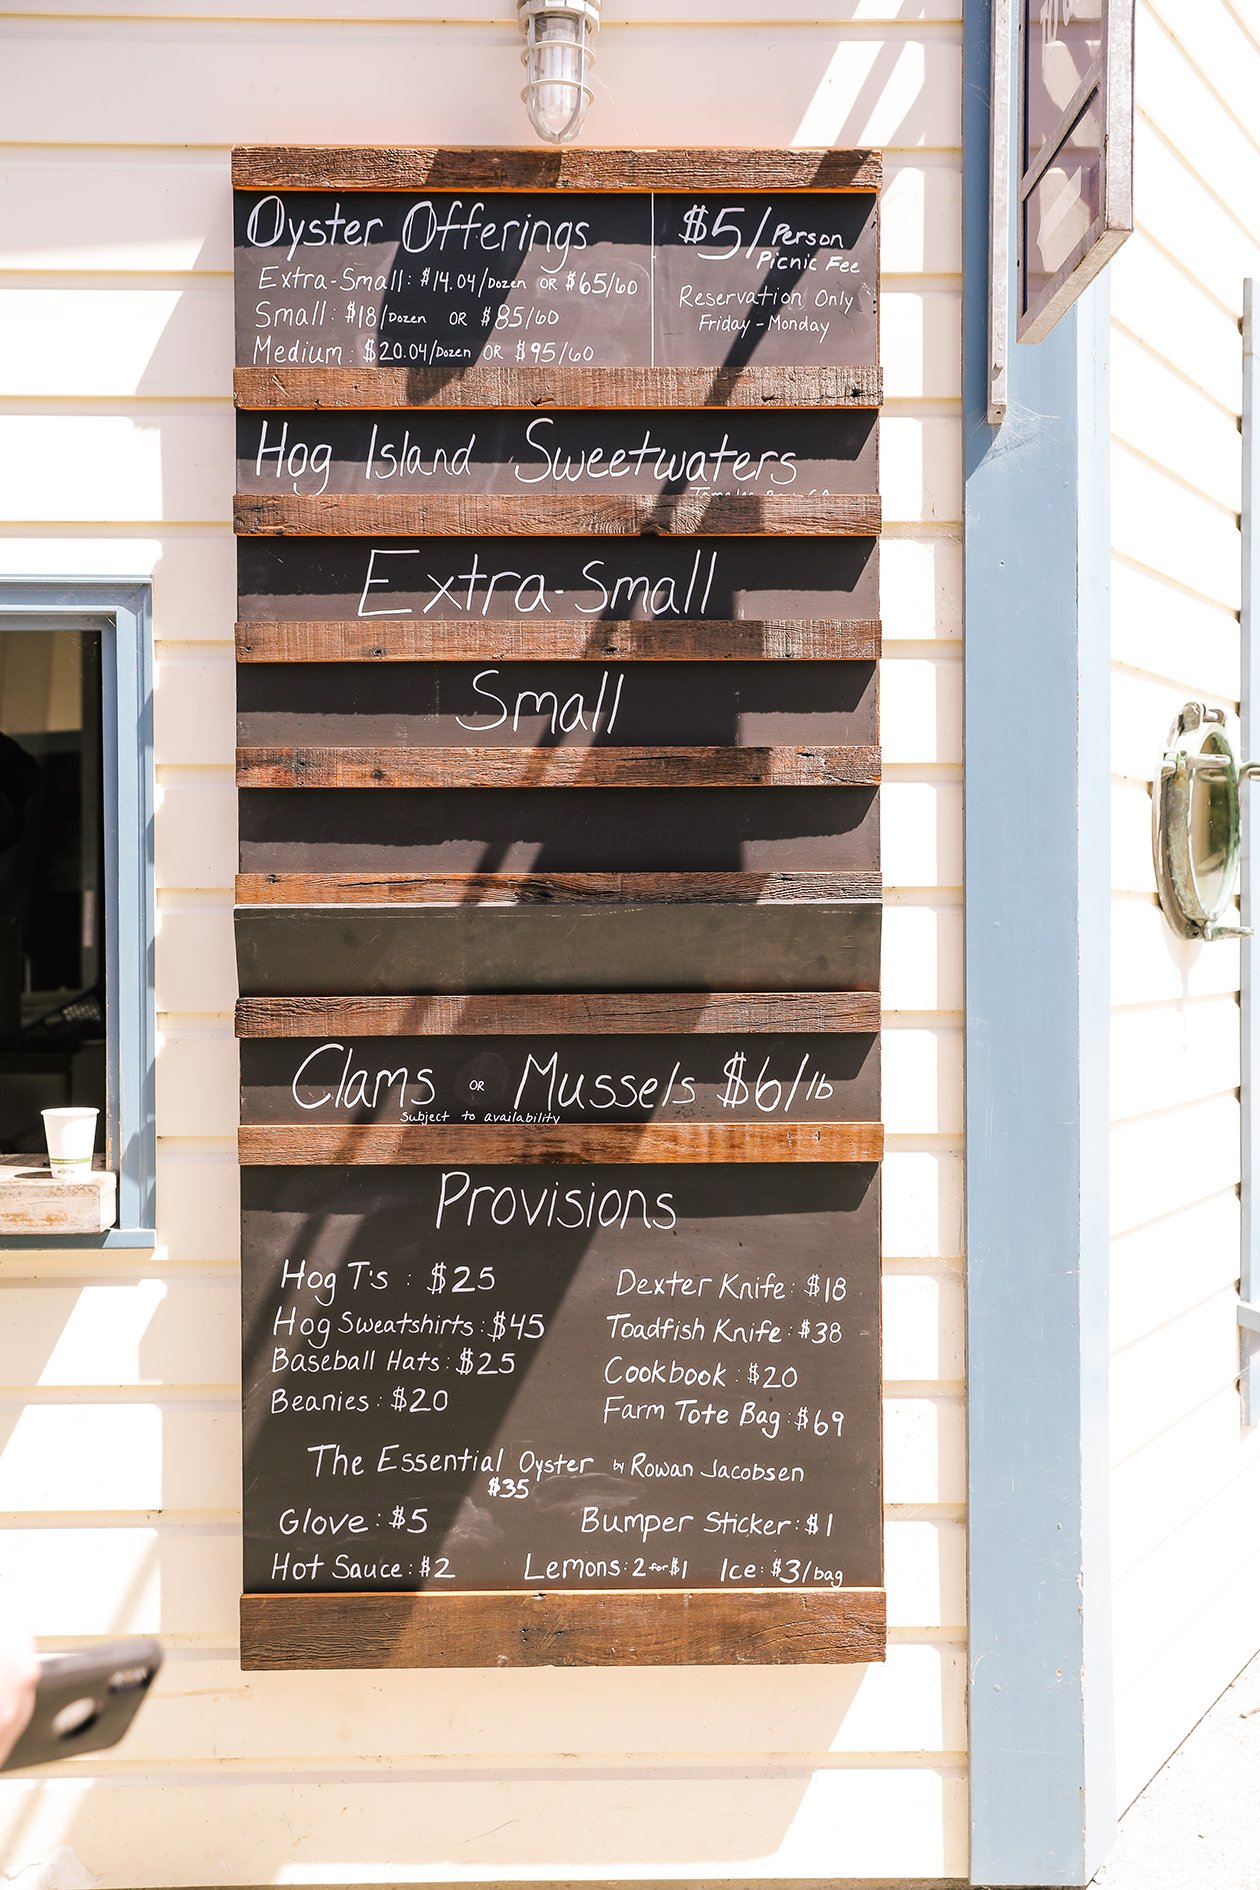 Oyster Offerings
Extra-Small: $14.04/Dozen OR $65/60
Small: $18/Dozen OR $85/60
Medium: $20.04/Dozen OR $95/60
$5/Person
Picnic Fee
Reservation Only
Friday - Monday
Hog Island Sweetwaters
Extra-Small
Small
Clams OR Mussels $6/lb
Subject to availability
Provisions
Hog T's: $25
Hog Sweatshirts: $45
Baseball Hats: $25
Beanies: $20
Dexter Knife: $18
Toadfish Knife: $38
Cookbook: $20
Farm Tote Bag: $69
The Essential Oyster by Rowan Jacobsen
$35
Glove: $5 Bumper Sticker: $1
Hot Sauce: $2 Lemons: 2 for $1 Ice: $3/bag